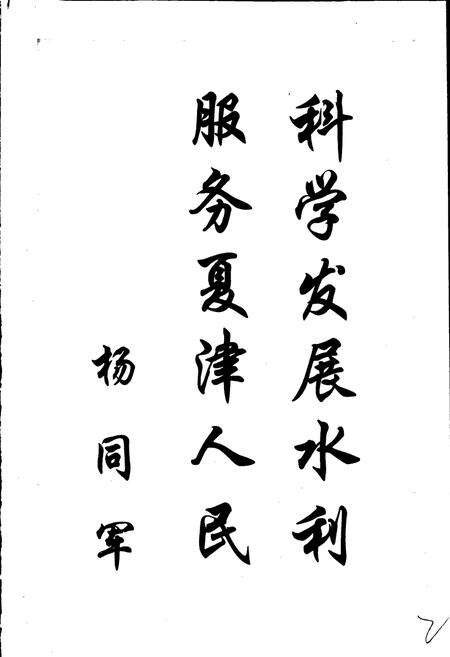 科学发展水利
服务夏津人民
杨同军